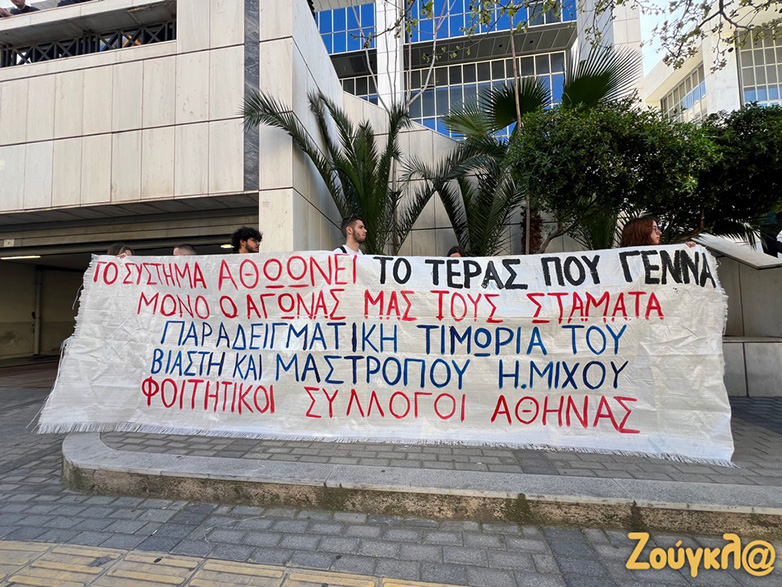 ΤΟ ΣΥΣΤΗΜΑ ΑΘΩΩΝΕΙ ΤΟ ΤΕΡΑΣ ΠΟΥ ΓΕΝΝΑ
ΜΟΝΟ Ο ΑΓΩΝΑΣ ΜΑΣ ΤΟΥΣ ΣΤΑΜΑΤΑ
ΠΑΡΑΔΕΙΓΜΑΤΙΚΗ ΤΙΜΩΡΙΑ ΤΟΥ
ΒΙΑΣΤΗ ΚΑΙ ΜΑΣΤΡΟΠΟΥ Η.ΜΙΧΟΥ
ΦΟΙΤΗΤΙΚΟΙ ΣΥΛΛΟΓΟΙ ΑΘΗΝΑΣ
Ζούγκλ@